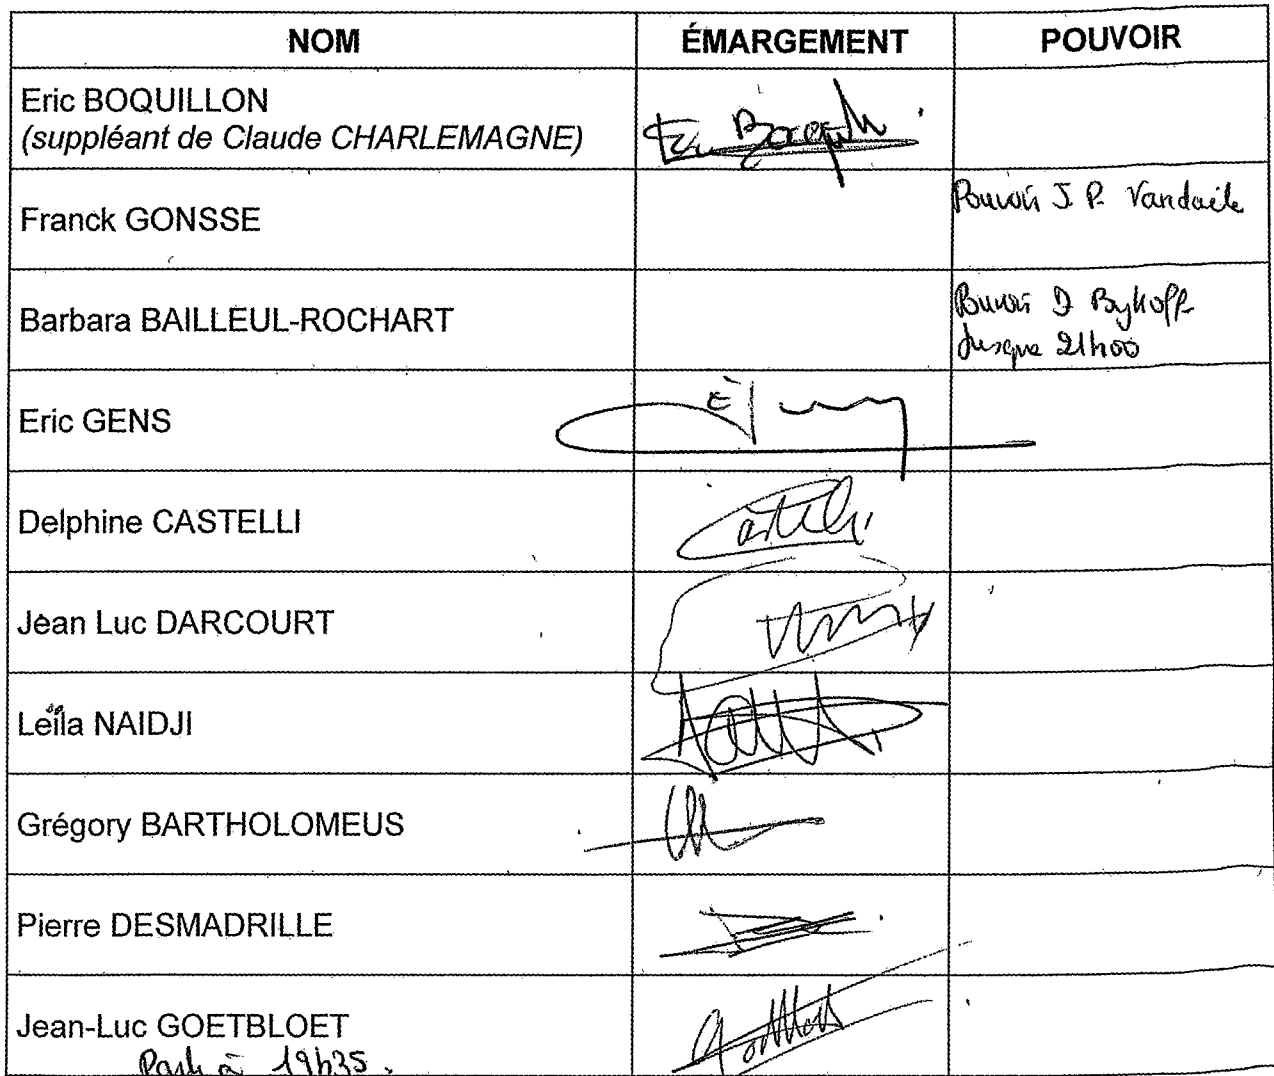 NOM ÉMARGEMENT POUVOIR
Eric BOQUILLON
(suppléant de Claude CHARLEMAGNE)
Franck GONSSE Pouvoir J. P. Vandaele
Barbara BAILLEUL-ROCHART Pouvoir D Byhoff
Jusque 21h00
Eric GENS
Delphine CASTELLI Castelli
Jean Luc DARCOURT
Leïla NAIDJI
Grégory BARTHOLOMEUS
Pierre DESMADRILLE
Jean-Luc GOETBLOET
à 19h35.